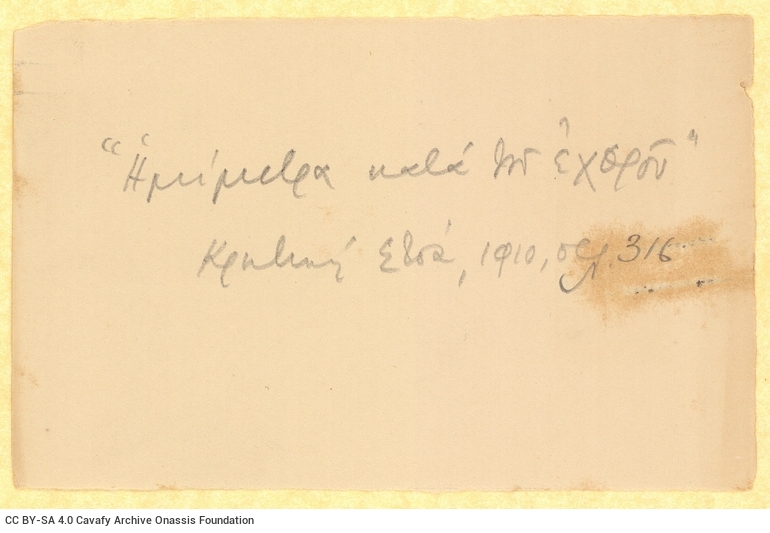 "Ἡμίμετρα κατά τοῦ ἐχθροῦ"
Κρητική Στοά, 1910, σελ. 316
CC BY-SA 4.0 Cavafy Archive Onassis Foundation